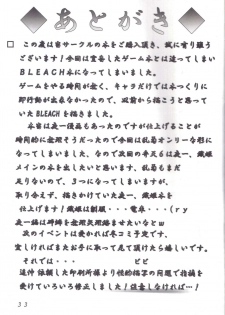 あとがき
□ この度は当サークルの本をご購入頂き、誠に有り難う
ございます！今回は宣告したゲーム本とは違ってしまい
BLEACH本になってしまいました。
ゲームをやる時間が全く、キャラだけでは本つくりに
即行動が出来なかったので、以前から描こうと思って
いたBLEACHを描きました。
本当は夜一優品もあったのですが仕上げることが
時間的に無理そうだったので今回は乱菊オンリーな形に
なってしまいました、なので次回の
メインの本を出したいと思います、乱菊もまだ
足りないので、3つになってしまいますが、
取り合えず、描きかけていた夜一、織姫本を
仕上げます！織姫は制服・・・電車・・・(ry
夜一編は砕蜂を無理矢理絡ませたいなとw
次のイベントは受かれば冬コミ予定です、
宜しければまたお手に取って見て頂けたら嬉しいです。
それでは・・・
追伸 依頼した印刷所様より性的描写の問題で指摘を
受けていろいろ修正しました！
33